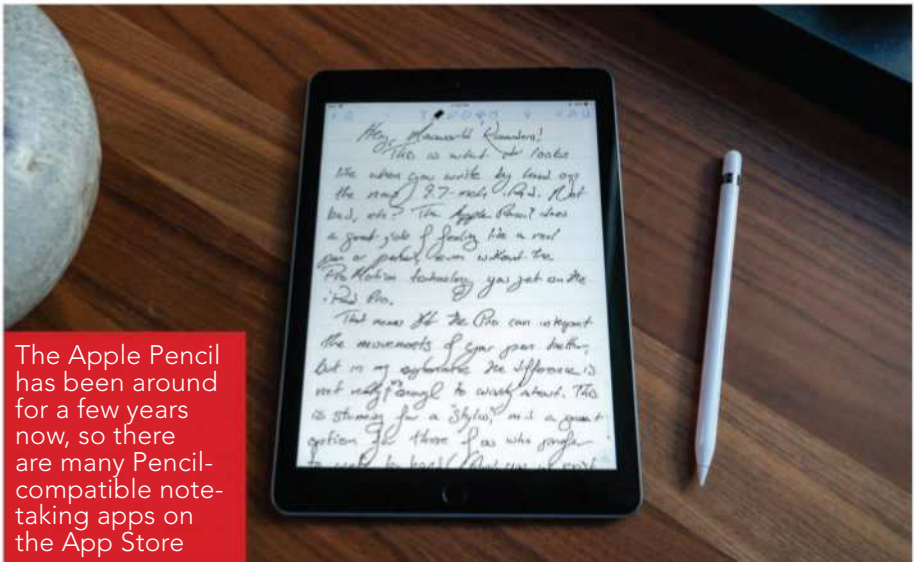 Hey, Macworld Readers!
This is what it looks
like when you write by hand on
the new 9.7-inch iPad. Not
bad, eh? The Apple Pencil does
a great job of feeling like a real
pen or pencil, even without the
ProMotion technology you get on the
iPad Pro.
That means that the Pro can interpret
the movements of your pen better,
but in my experience the difference is
not really enough to worry about. This
is stunning for a "stylus", and a great
option for those of us who prefer
to write by hand.
The Apple Pencil
has been around
for a few years
now, so there
are many Pencil-
compatible note-
taking apps on
the App Store